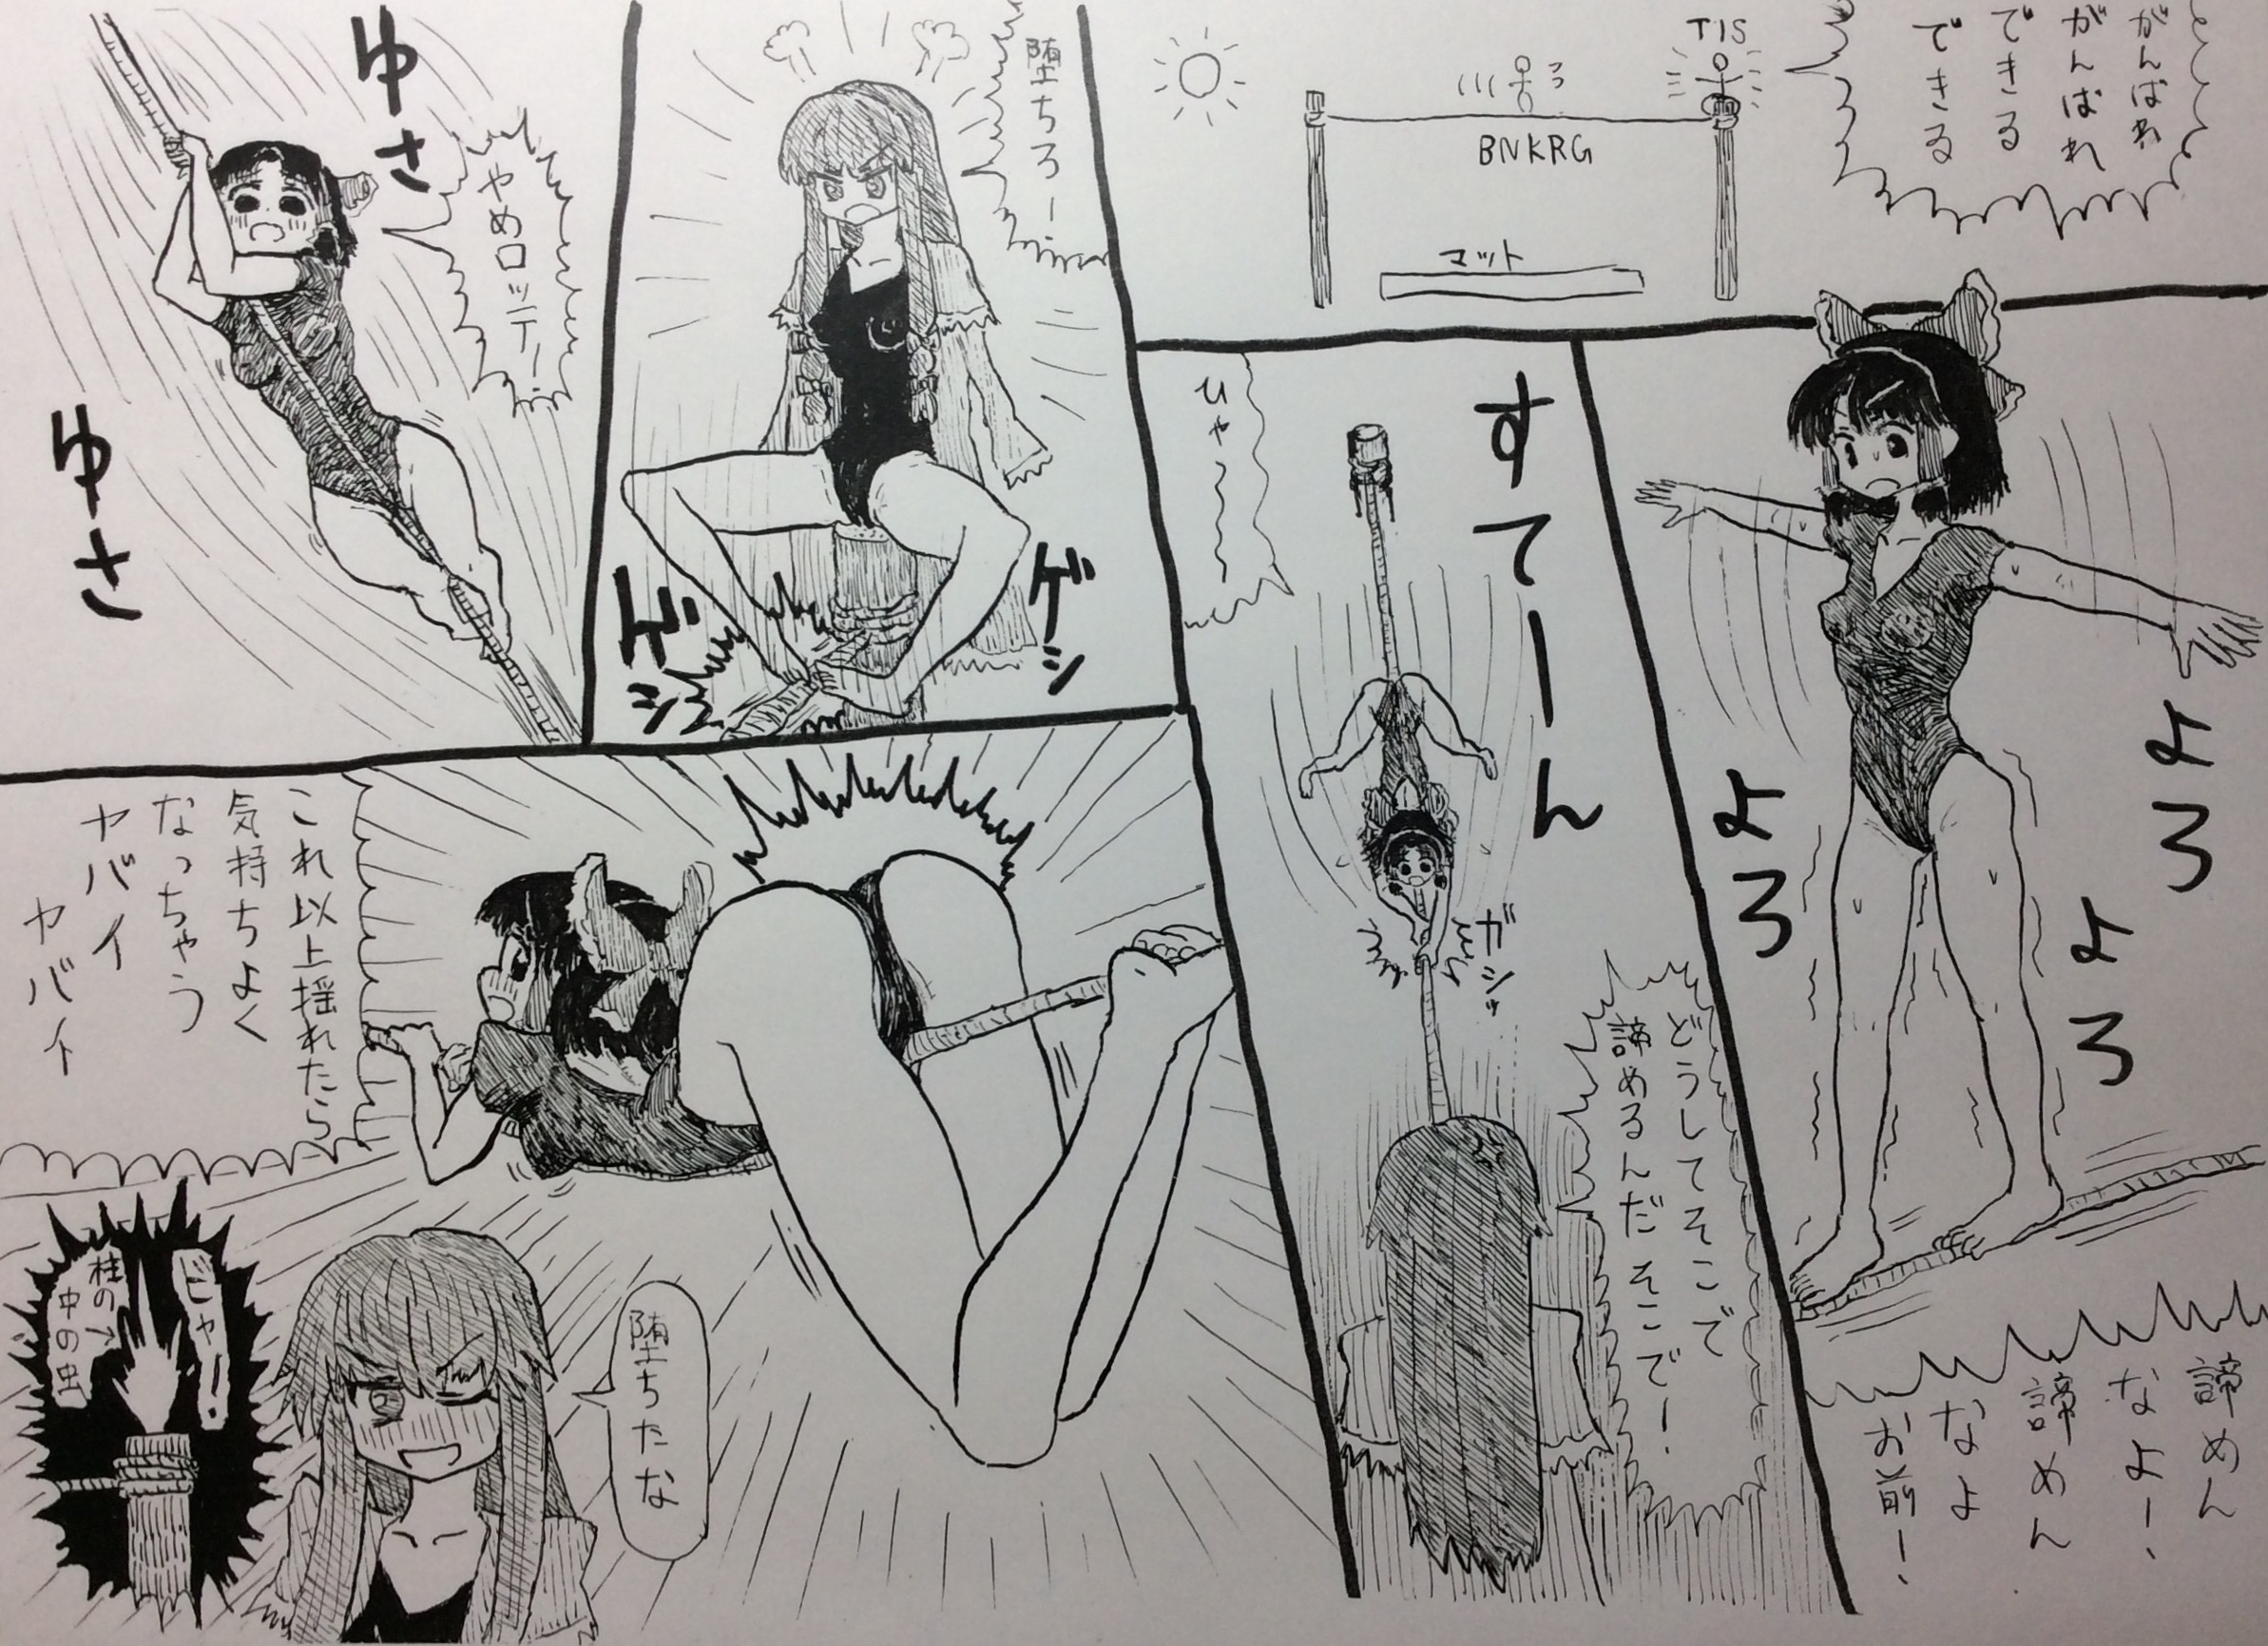 がんばれ
がんばれ
できる
できる
TIS
BNKRG
マット
よろ
よろ
よろ
諦めん
なよー、
諦めん
なよ
お前ー!
すてーん
ひゃ〜〜〜
ガシッ
どうしてそこで
諦めるんだそこでー!
堕ちろー!
ゲシ
ゲシ
ゆさ
やめロッテー!
ゆさ
これ以上揺れたら
気持ちよく
なっちゃう
ヤバイ
ヤバイ
堕ちたな
ピャー!
柱の→
中の虫